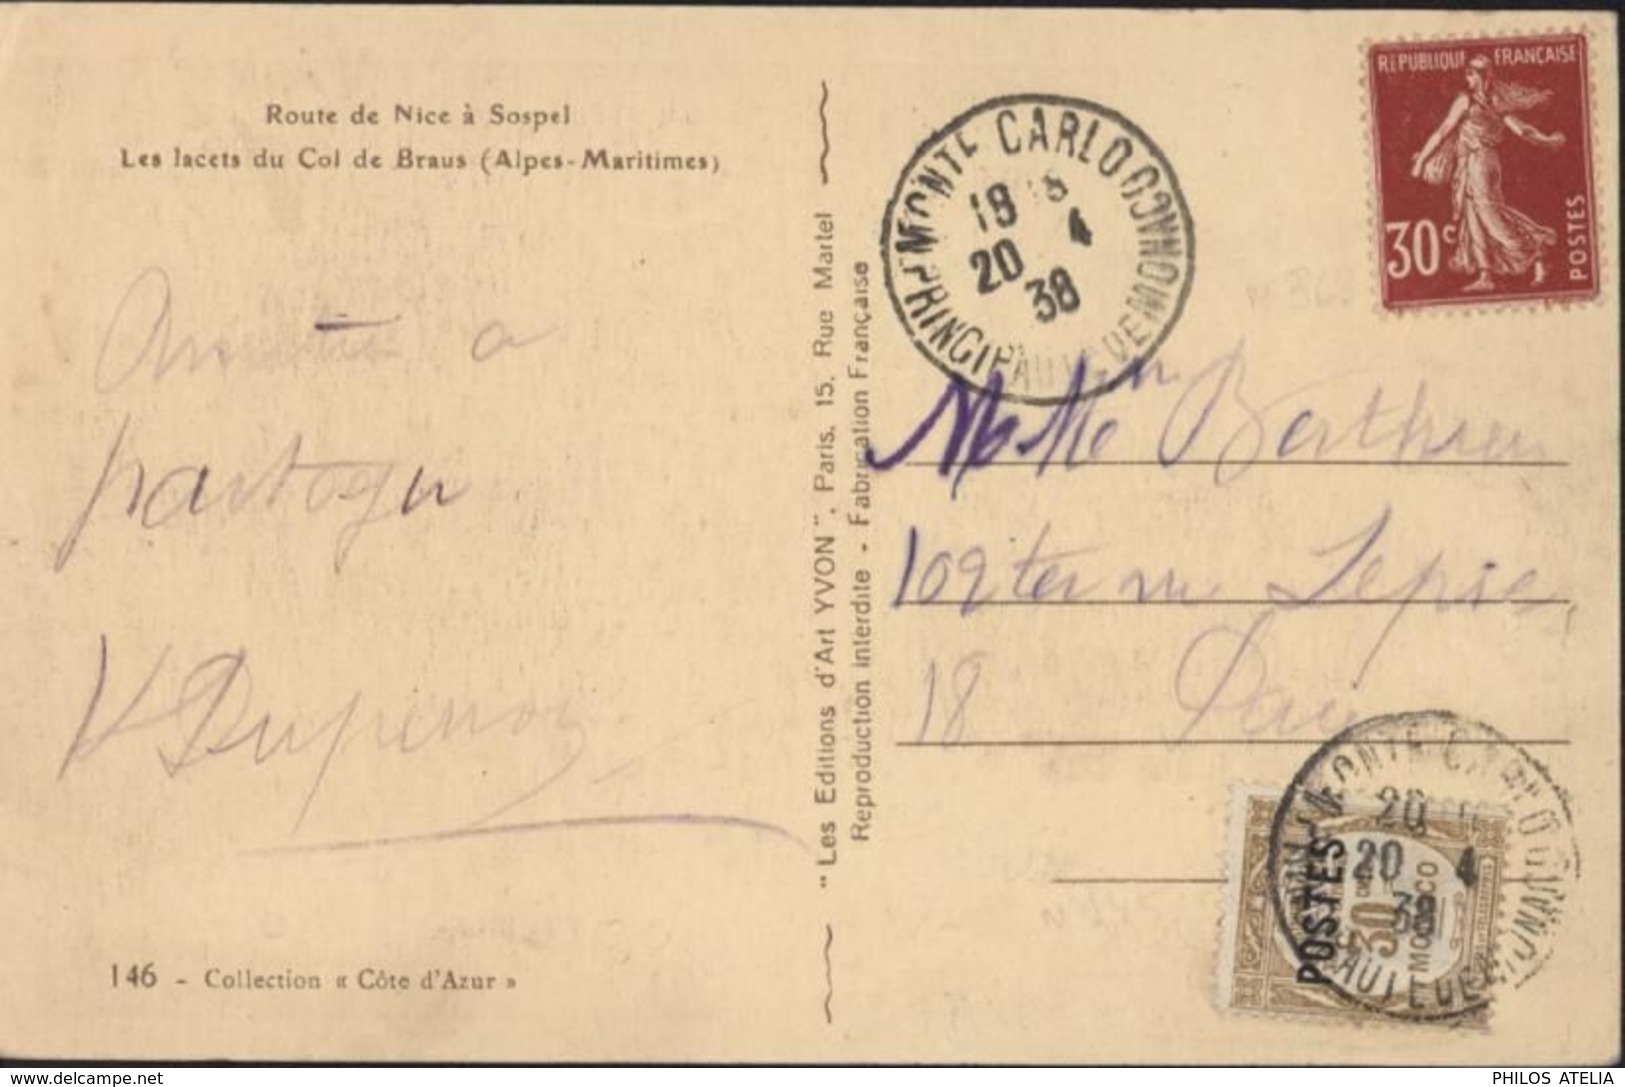 Route de Nice à Sospel
Les lacets du Col de Braus (Alpes-Maritimes)
a
partager
146 - Collection « Côte d'Azur »
"Les Editions d'Art YVON", Paris, 15, Rue Martel
Reproduction interdite - Fabrication Française
MONTE CARLO
18 18
20 4
38
PRINCIPAUTE DE MONACO
REPUBLIQUE FRANÇAISE
30c
POSTES
Berthieu
102 ter rue Lepic
18 Paris
MONTE CARLO
20
20 4
38
PRINCIPAUTE DE MONACO
POSTES
30
MONACO
PHILOS ATELIA
www.delcampe.net